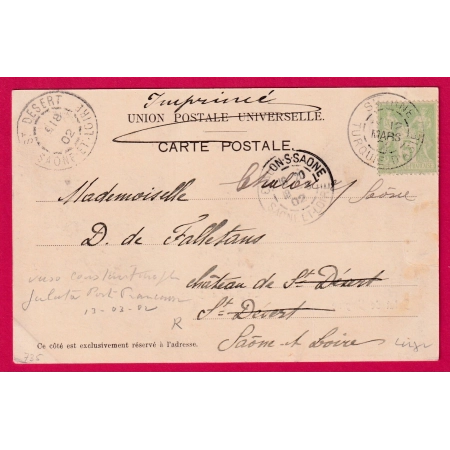 Imprimé
UNION POSTALE UNIVERSELLE.
CARTE POSTALE.
ST DESERT
SAONE-ET-LOIRE
02
MARS
TURQUIE D'ASIE
CHALON-S-SAONE
SAONE-ET-LOIRE
02
Mademoiselle Chalon s/
Saône
D. de Falletans
château de St Désert
St Désert
Saône et Loire
verso
13-03-02
R
Ce côté est exclusivement réservé à l'adresse.